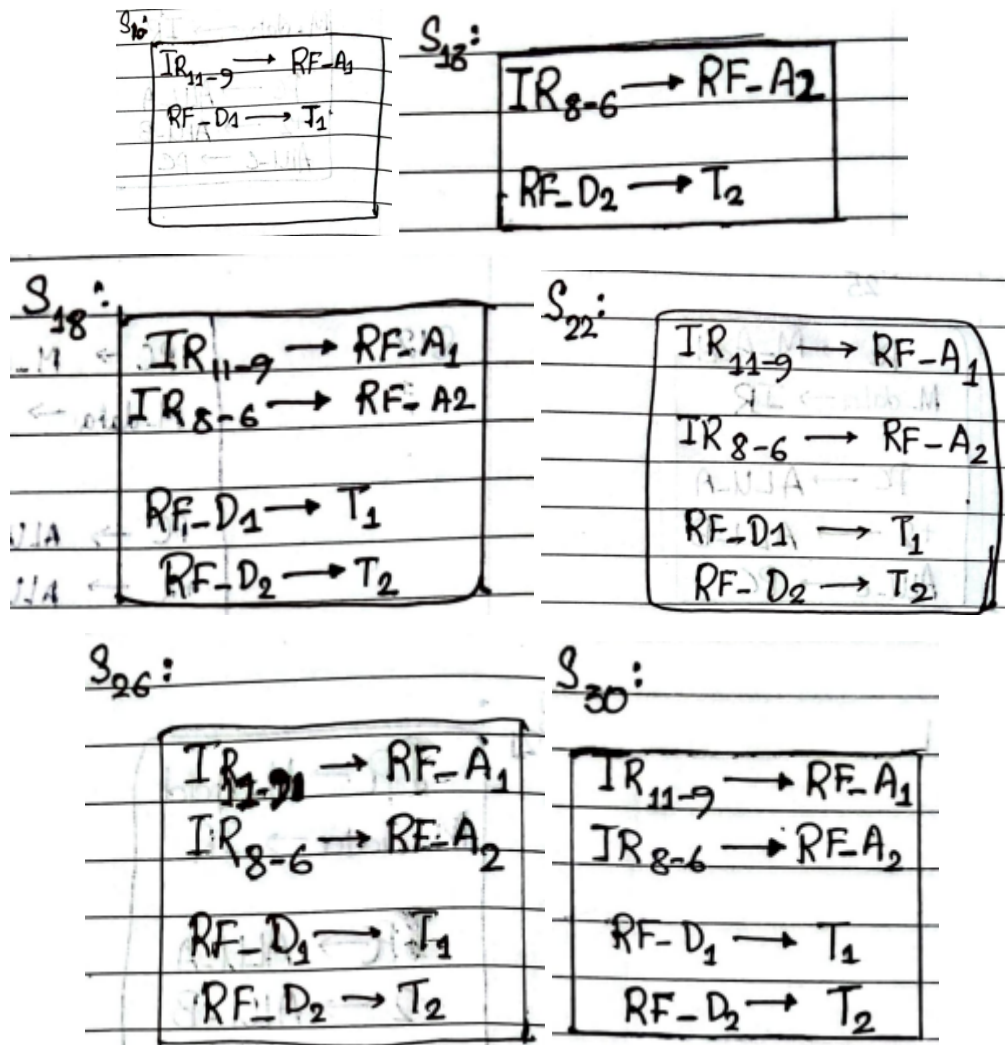 S10:
IR11-9 → RF-A1
RF-D1 → T1
S13:
IR8-6 → RF-A2
RF-D2 → T2
S18:
IR11-9 → RF-A1
IR8-6 → RF-A2
RF-D1 → T1
RF-D2 → T2
S22:
IR11-9 → RF-A1
IR8-6 → RF-A2
RF-D1 → T1
RF-D2 → T2
S26:
IR → RF-A1
IR8-6 → RF-A2
RF-D1 → T1
RF-D2 → T2
S30:
IR11-9 → RF-A1
IR8-6 → RF-A2
RF-D1 → T1
RF-D2 → T2